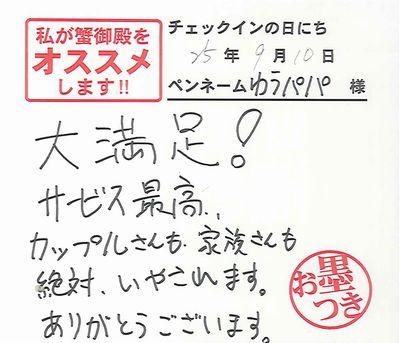 私が蟹御殿を
オススメ
します!!
チェックインの日にち
25年9月10日
ペンネームゆうパパ 様
大満足!
サービス最高、
カップルさんも家族さんも
絶対、いやされます。
ありがとうございます。
お墨つき